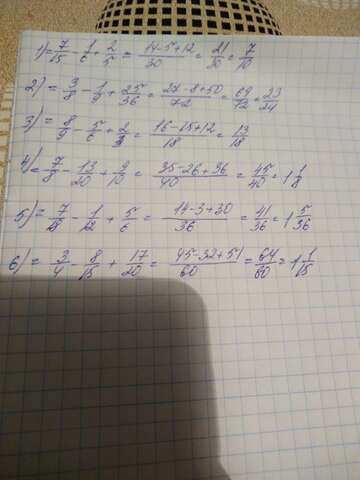 1) = 7/15 - 1/6 + 2/5 = 14-5+12/30 = 21/30 = 7/10
2) = 3/8 - 1/9 + 25/36 = 27-8+50/72 = 69/72 = 23/24
3) = 8/9 - 5/6 + 2/3 = 16-15+12/18 = 13/18
4) = 7/8 - 13/20 + 9/10 = 35-26+36/40 = 45/40 = 1 1/8
5) = 7/18 - 1/12 + 5/6 = 14-3+30/36 = 41/36 = 1 5/36
6) = 3/4 - 8/15 + 17/20 = 45-32+51/60 = 64/60 = 1 1/15